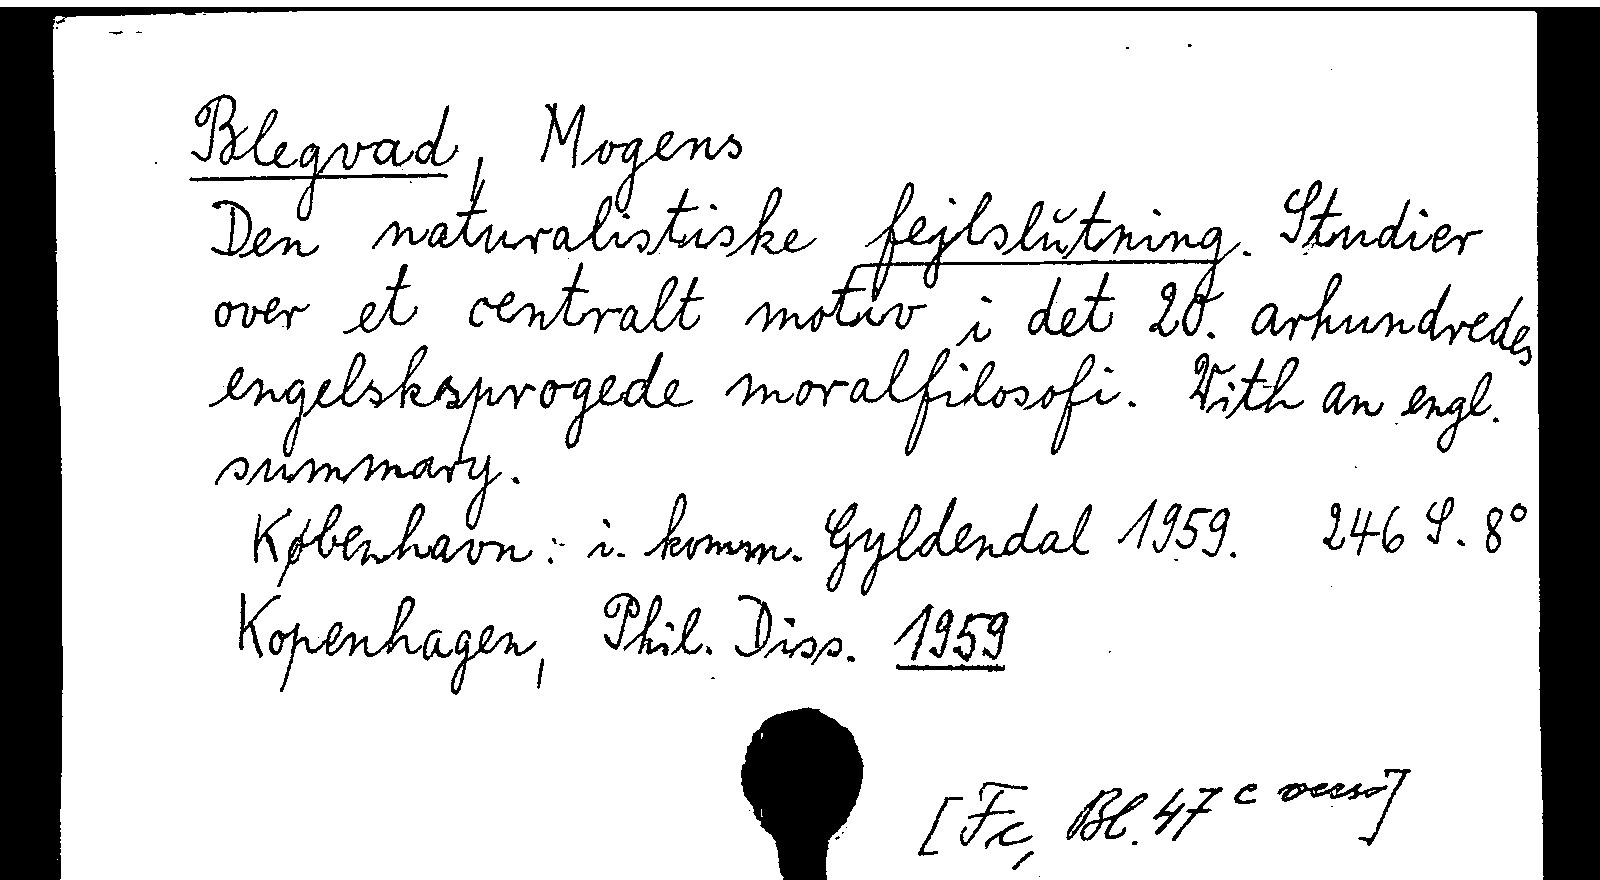 Blegvad, Mogens
Den naturalistiske fejlslŭtning. Studier
over et centralt motiv i det 20. arhundredes
engelsksprogede moralfilosofi. With an engl.
summary.
København: i. komm. Gyldendal 1959. 246 S. 8°
Kopenhagen, Phil. Diss. 1959
[Fc, Bl. 47 c verso]